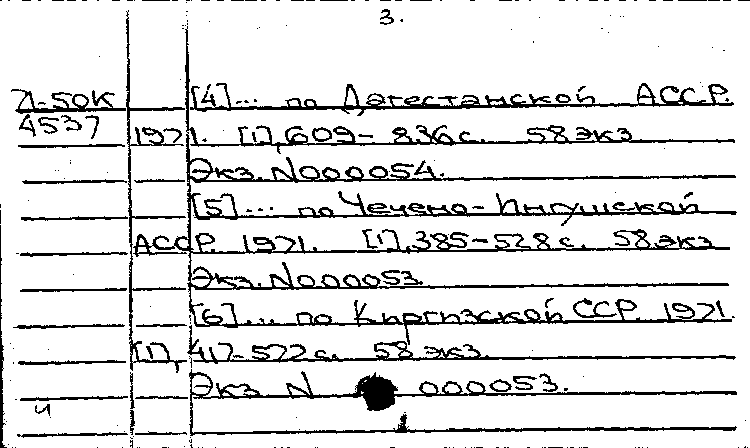 3.
Д-50К [4]... по Дагестанской АССР.
4537 1971. [1], 609-836 с. 58 экз
Экз. N000054.
[5]... по Чечено-Ингушской
АССР. 1971. [1], 385-528 с. 58 экз
Экз. N000053
[6]... по Киргизской ССР. 1971.
[1], 417-522 с. 58 экз.
Экз N 000053.
ч